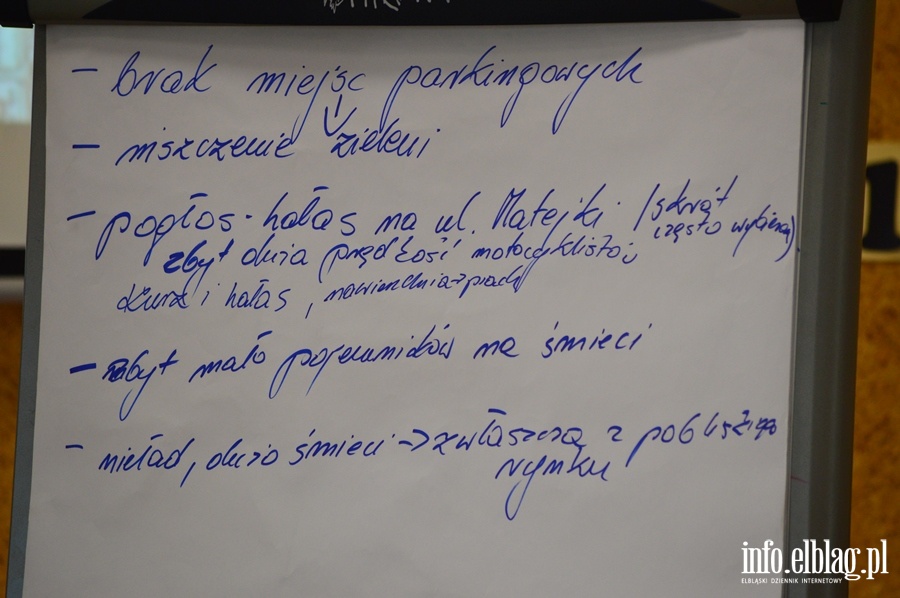 - brak miejsc parkingowych
- niszczenie zieleni
- pogłos - hałas na ul. Matejki / skrót
często wybierany)
zbyt duża prędkość motocyklistów
kurz i hałas,
- zbyt mało pojemników na śmieci
- nieład, dużo śmieci -> zwłaszcza z pobliskiego
rynku
info.elblag.pl
ELBLĄSKI DZIENNIK INTERNETOWY